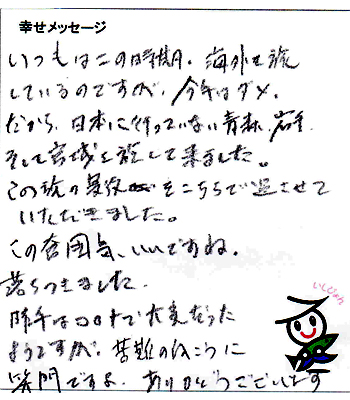 幸せメッセージ
いつもはこの時期、海外を旅
しているのですが、今年はダメ。
だから、日本に行っていない青森、岩手
そして宮城を旅して来ました。
この旅の最後をこちらで過させて
いただきました。
この雰囲気、いいですね。
落ちつきました。
昨年はコロナで大変だった
ようですが、苦難の向こうに
笑門ですよ。ありがとうございます